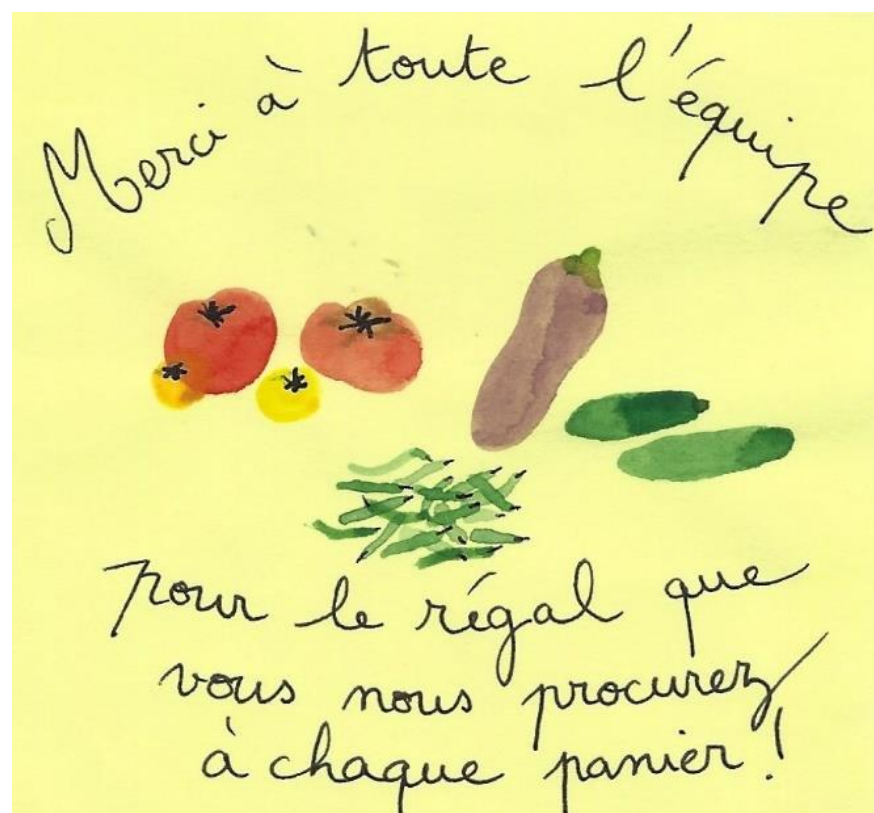 Merci à toute l'équipe
pour le régal que
vous nous procurez
à chaque panier !